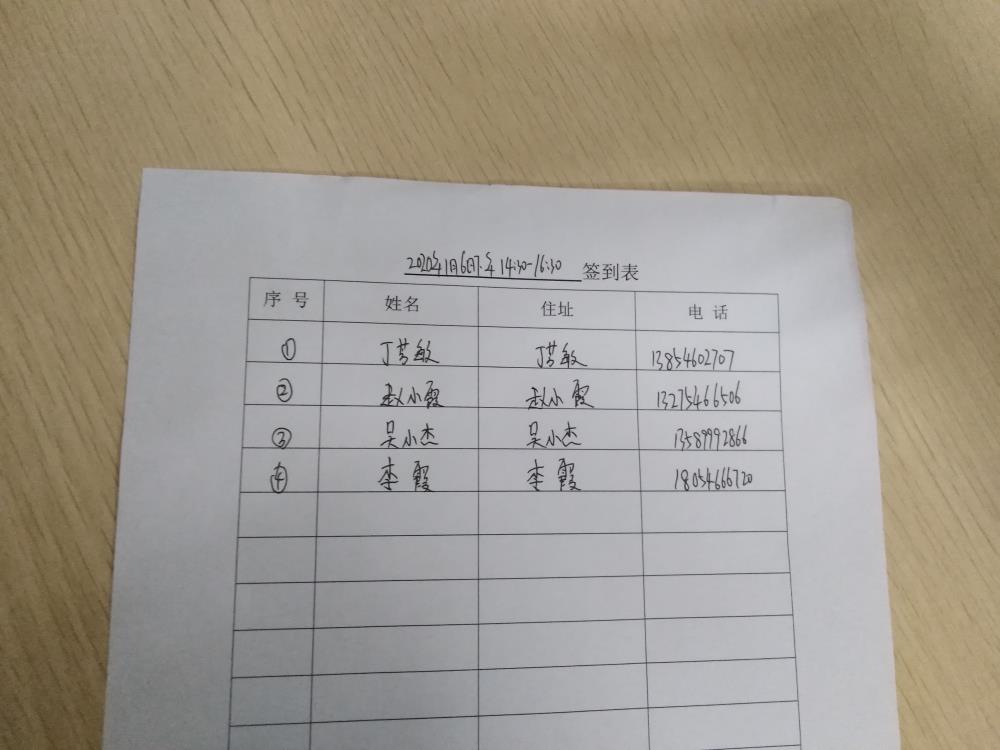 2020年1月6日下午14:30-16:30 签到表
序号 姓名 住址 电话
① 丁芳敏 丁芳敏 13854602707
② 赵小霞 赵小霞 13275466506
③ 吴小杰 吴小杰 13589992866
④ 李霞 李霞 18054666720